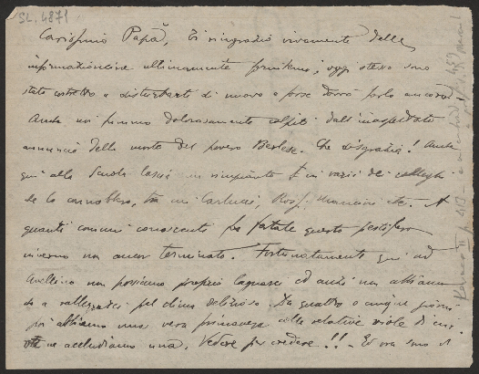 SL. 4871
Carissimo Papà, Ti ringrazio vivamente delle
informazioncine ultimamente fornitemi; oggi stesso sono
stato costretto a disturbarti di nuovo e forse dovrò farlo ancora!
Anche noi fummo dolorosamente colpiti dall'inaspettato
annunzio della morte del povero Che disgrazia! Anche
qui alla Scuola lascia un rimpianto in vari dei colleghi
che lo conobbero, tra cui Carlucci, Rossi, Mancini etc. A
quanti comuni conoscenti fu fatale questo pestifero
inverno non ancor terminato. Fortunatamente qui ad
Avellino non possiamo proprio lagnarci ed anzi non abbiamo
che a rallegrarci pel clima delizioso. Da quattro o cinque giorni
poi abbiamo una vera primavera colle relative viole di cui
te ne accludiamo una. Vedere per credere!! - Ed ora sono a